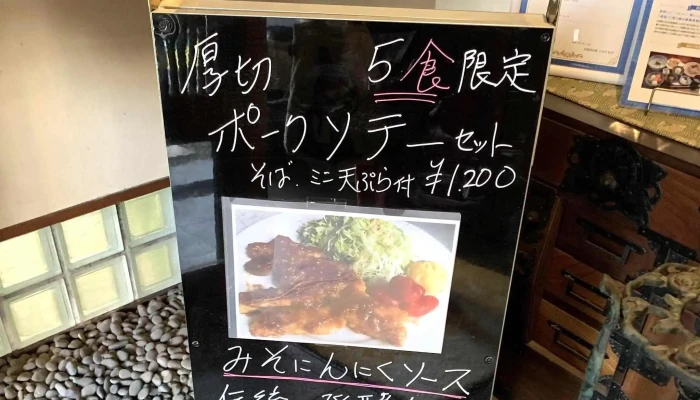 厚切 5食限定
ポークソテーセット
そば.ミニ天ぷら付 ¥1.200
みそにんにくソース